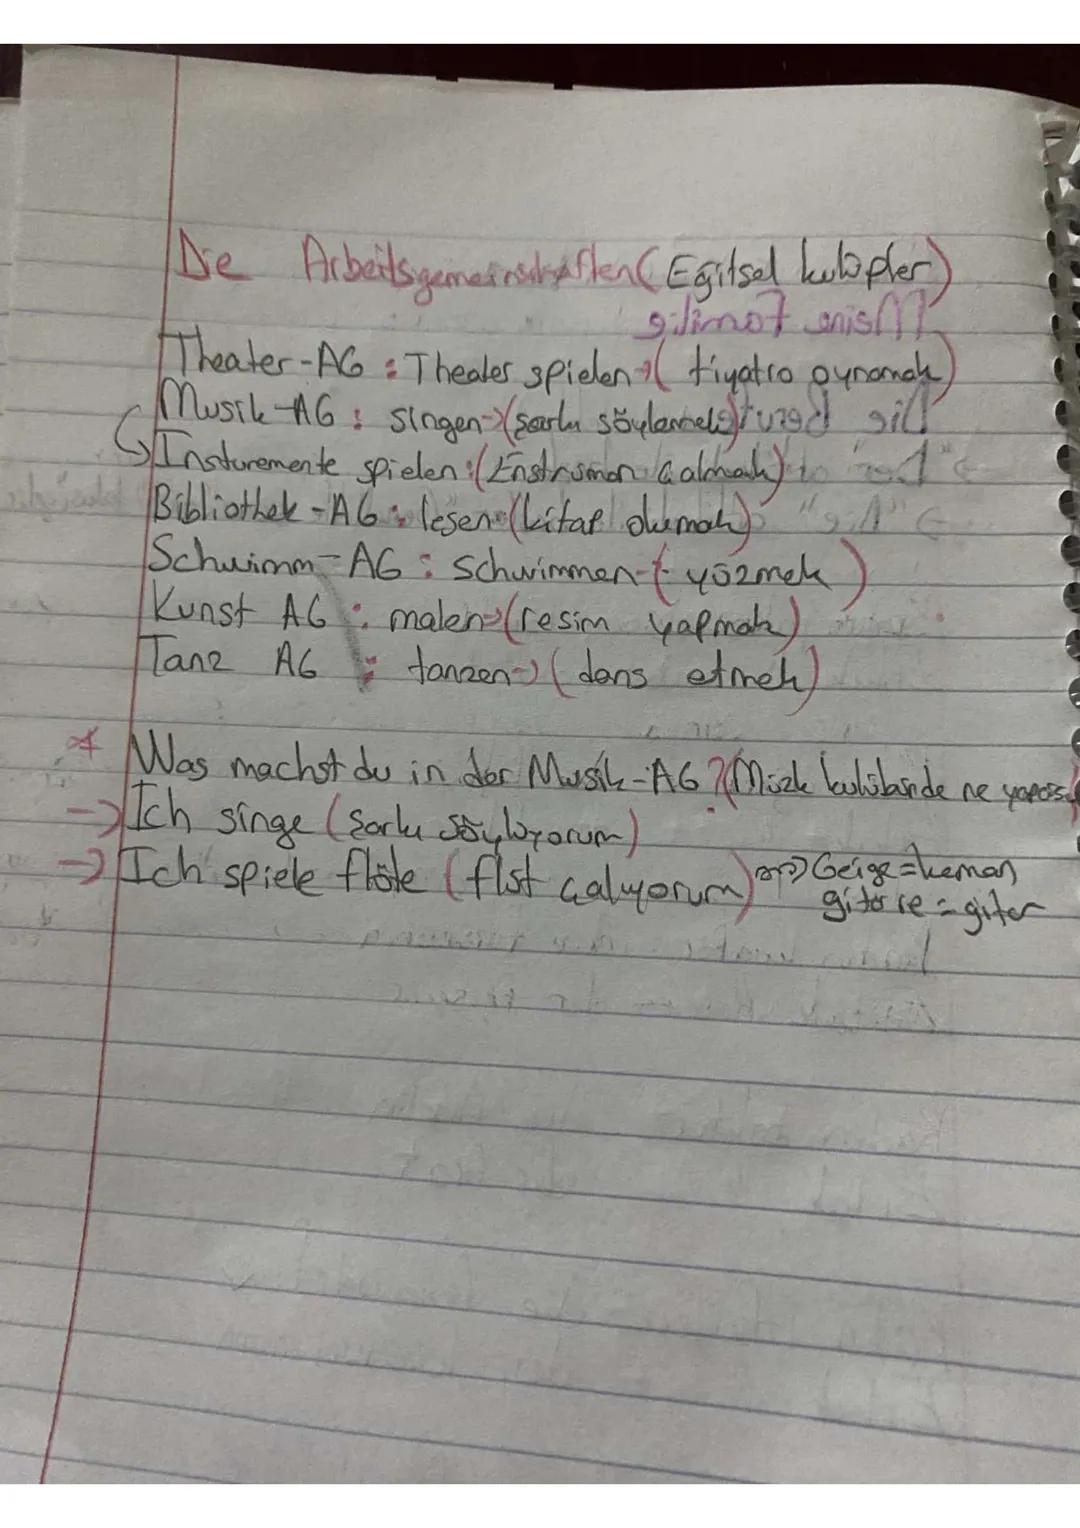 Die Arbeitsgemeinschaften (Eğitsel kulüpler)
Theater-AG : Theater spielen → ( tiyatro oynamak)
Musik-AG : singen → (şarkı söylemek)
Insturemente spielen : (Enstrüman çalmak)
Bibliothek-AG : lesen : (kitap okumak)
Schwimm-AG : schwimmen → ( yüzmek )
Kunst AG : malen → (resim yapmak)
Tanz AG : tanzen → ( dans etmek)
* Was machst du in der Musik-AG ? (Müzik kulübünde ne
→ Ich singe (Şarkı söylüyorum)
→ Ich spiele flöte (flüt çalıyorum) → Geige = keman
gitare = gitar